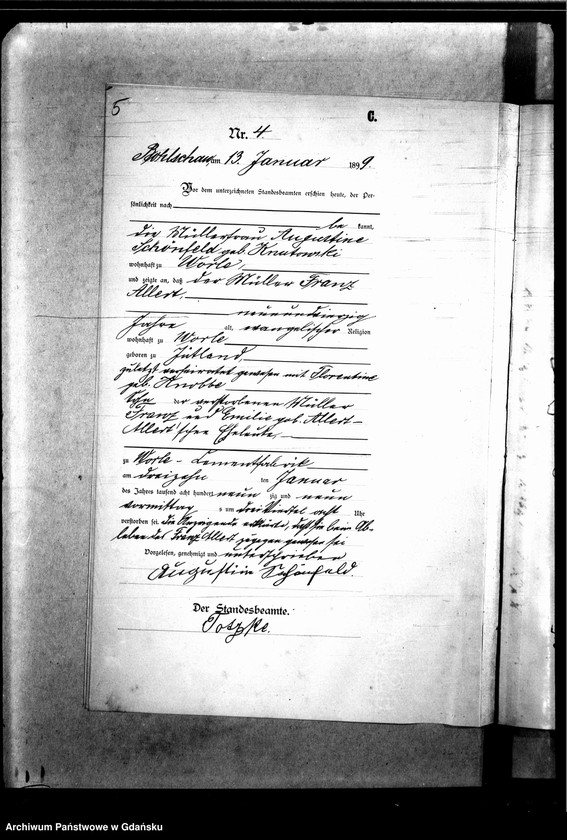 5
C.
Nr. 4.
Bohlschau am 13. Januar 1899.
Vor dem unterzeichneten Standesbeamten erschien heute, der Per-
sönlichkeit nach
be kannt,
die Müllerfrau Augustine
Schönfeld geb. Knutowski
wohnhaft zu Worle,
und zeigte an, daß der Müller Franz
Allert,
neunundvierzig
Jahre alt, evangelischer Religion
wohnhaft zu Worle
geboren zu Jütland,
zuletzt verheirathet gewesen mit Florentine
geb. Knobbe
Sohn der verstorbenen Müller
Franz und Emilie geb. Allert-
Allert'schen Eheleute,
zu Worle - Cementfabrik
am dreizehn ten Januar
des Jahres tausend acht hundert neun zig und neun
vormittag s um dreiviertel acht Uhr
verstorben sei. Die Anzeigende erklärte, daß sie beim Ab-
leben des Franz Allert zugegen gewesen sei
Vorgelesen, genehmigt und unterschrieben
Augustin Schönfeld.
Der Standesbeamte.
Totzke.
Archiwum Państwowe w Gdańsku